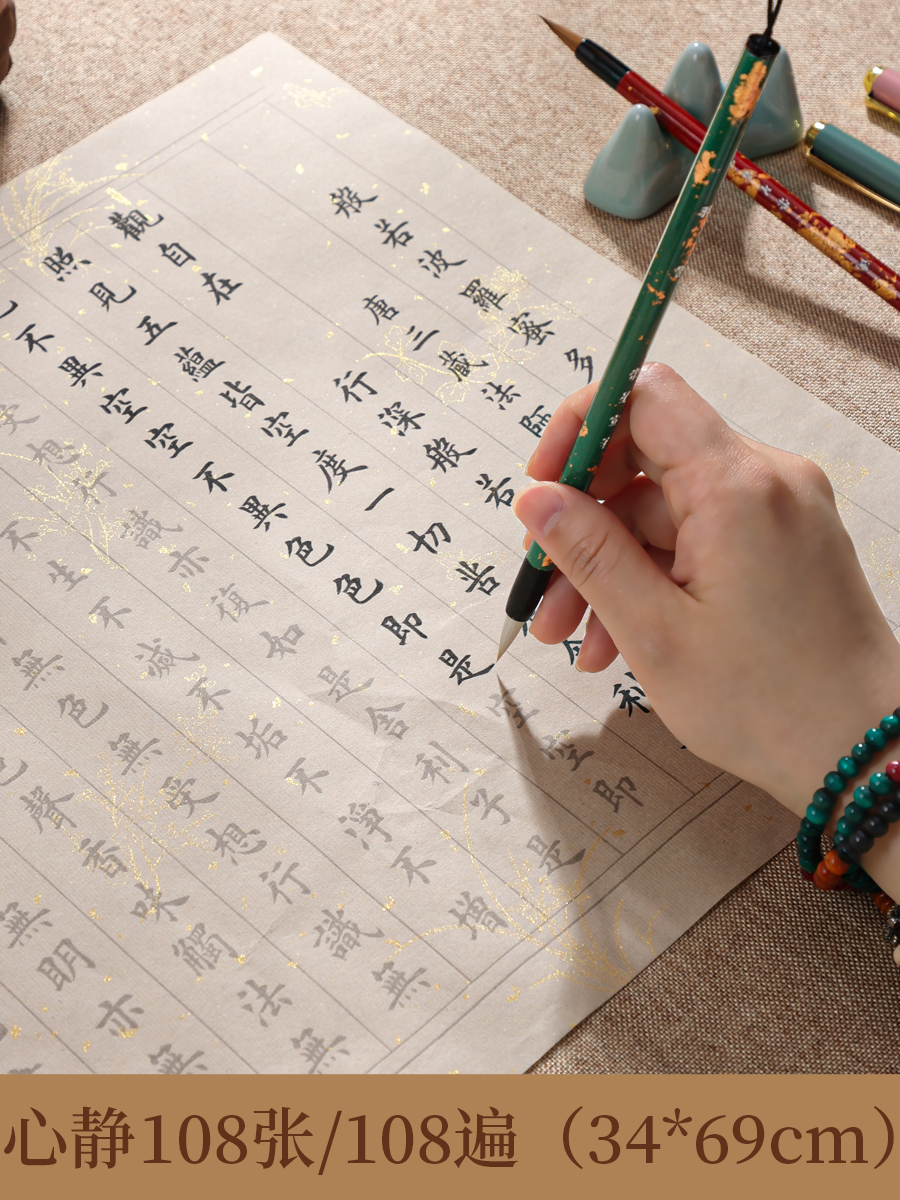 般若波羅蜜多
唐三藏法師
觀自在行深般若
照見五蘊皆空度一切苦舍利
色不異空空不異色色即是空空即
受想行識亦復如是舍利子是
不生不滅不垢不淨不增
無色無受想行識無
色聲香味觸法無
無明亦無
心静108张/108遍（34*69cm）